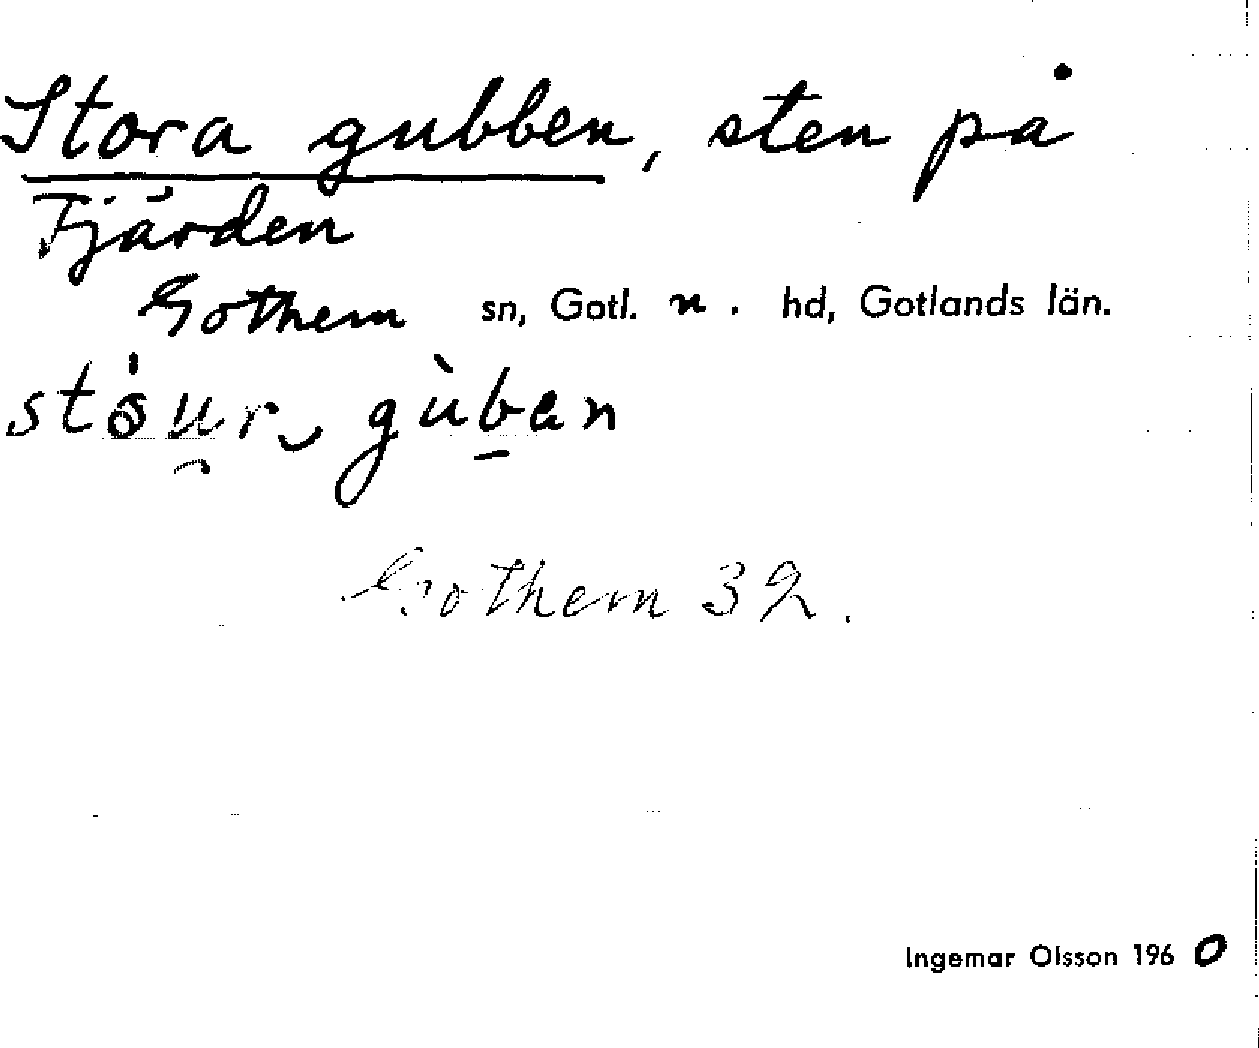 Stora gubben, sten på
Fjärden
Gothem sn, Gotl. n. hd, Gotlands län.
gùban
Gothem 32.
Ingemar Olsson 1960